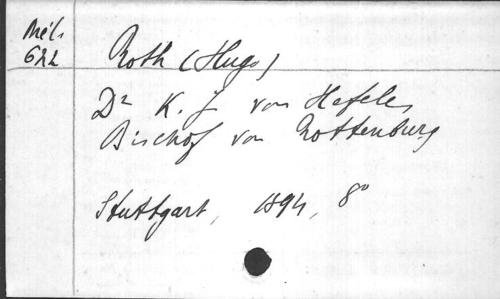 Mél.
622
Roth (Hugo)
Dr K. J. von Hefele,
Bischof von Rottenburg
Stuttgart, 1894, 8°